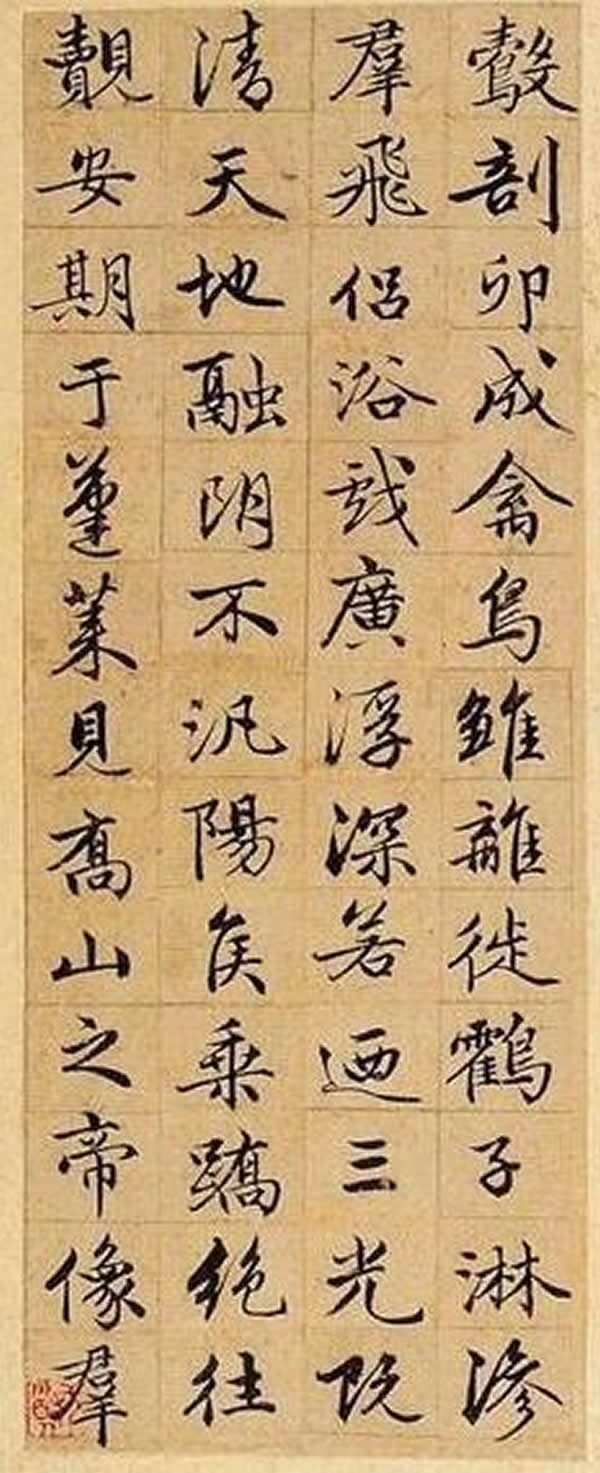 鷇剖卵成禽鳧雛離徙鸖子淋滲
羣飛侶浴戲廣浮深若迺三光既
清天地融朗不汎陽侯乘蹻絶往
覿安期于蓬萊見喬山之帝像羣